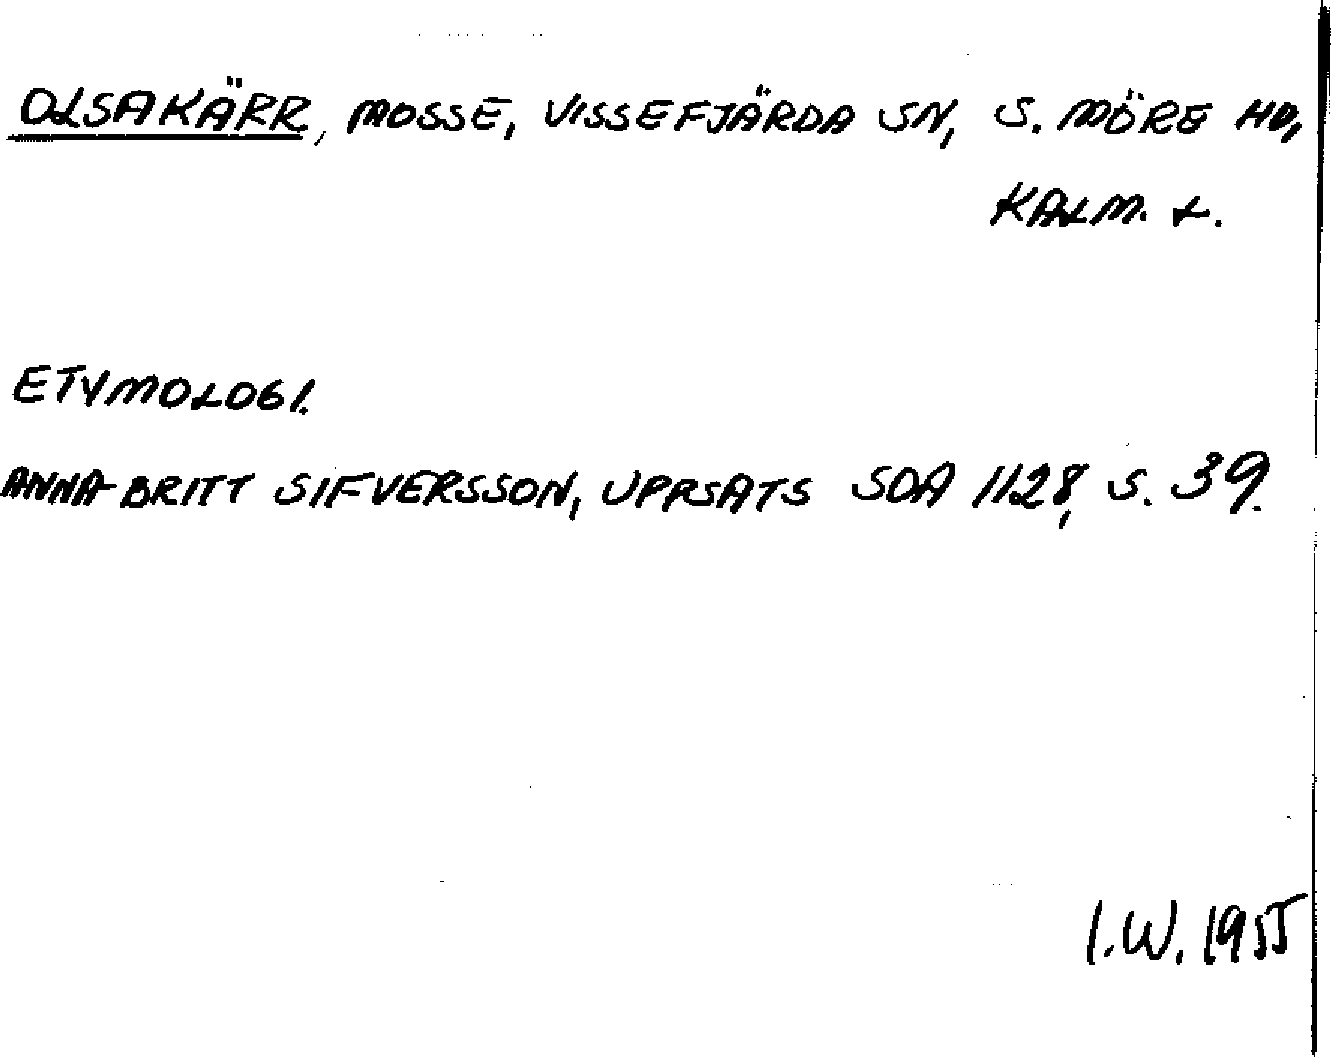 OLSAKÄRR, MOSSE, VISSEFJÄRDA SN, S. MÖRE HD,
KALM. L.
ETYMOLOGI.
ANNA-BRITT SIFVERSSON, UPPSATS SOA 1128, S. 39.
I.W. 1955